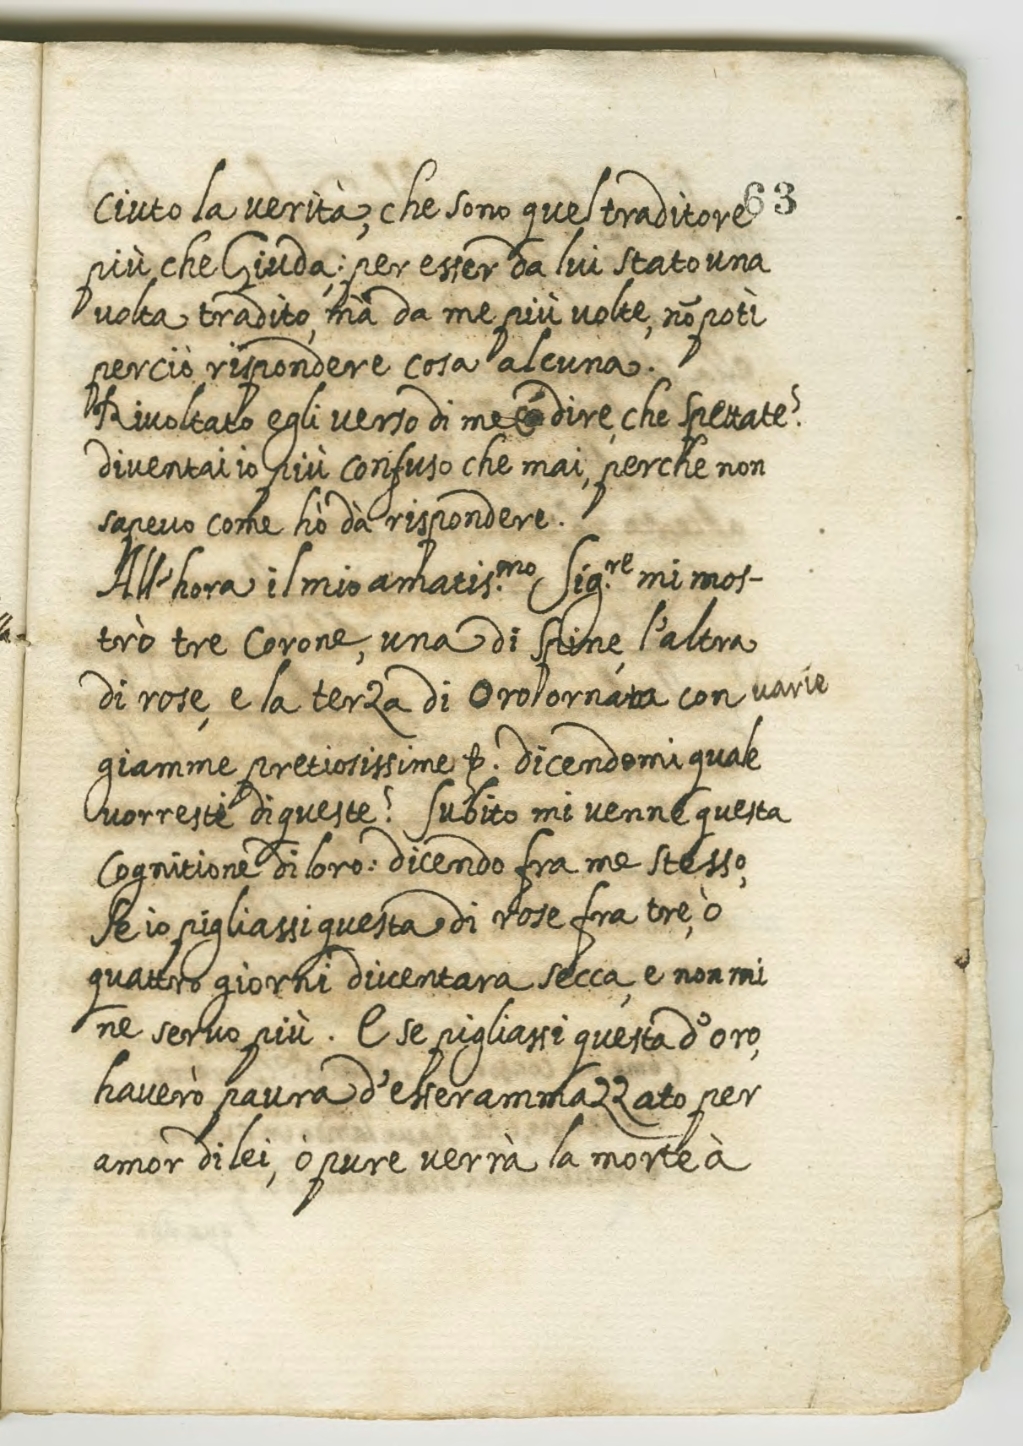 63
ciuto la uerità, che sono quel traditore
più che Giuda; per esser da lui stato una
uolta tradito, mà da me più uolte, nõ potì
perciò rispondere cosa alcuna.
Riuoltato egli uerso di me có dire, che spettate?
diuentai io più confuso che mai, perche non
sapeuo come hò dà rispondere.
All'hora il mio amatis.mo Sig.re mi mos-
trò tre Corone, una di spine, l'altra
di rose, e la terza di Oro ornata con uarie
giamme pretiosissime &. dicendomi quale
uorresti di queste? Subito mi venne questa
Cognitione di loro: dicendo fra me stesso,
Se io pigliassi questa di rose fra tre, ò
quattro giorni diuentara secca, e non mi
ne seruo più. E se pigliassi questa d'oro,
hauerò paura d'esser ammazzato per
amor di lei, ò pure uerrà la morte à